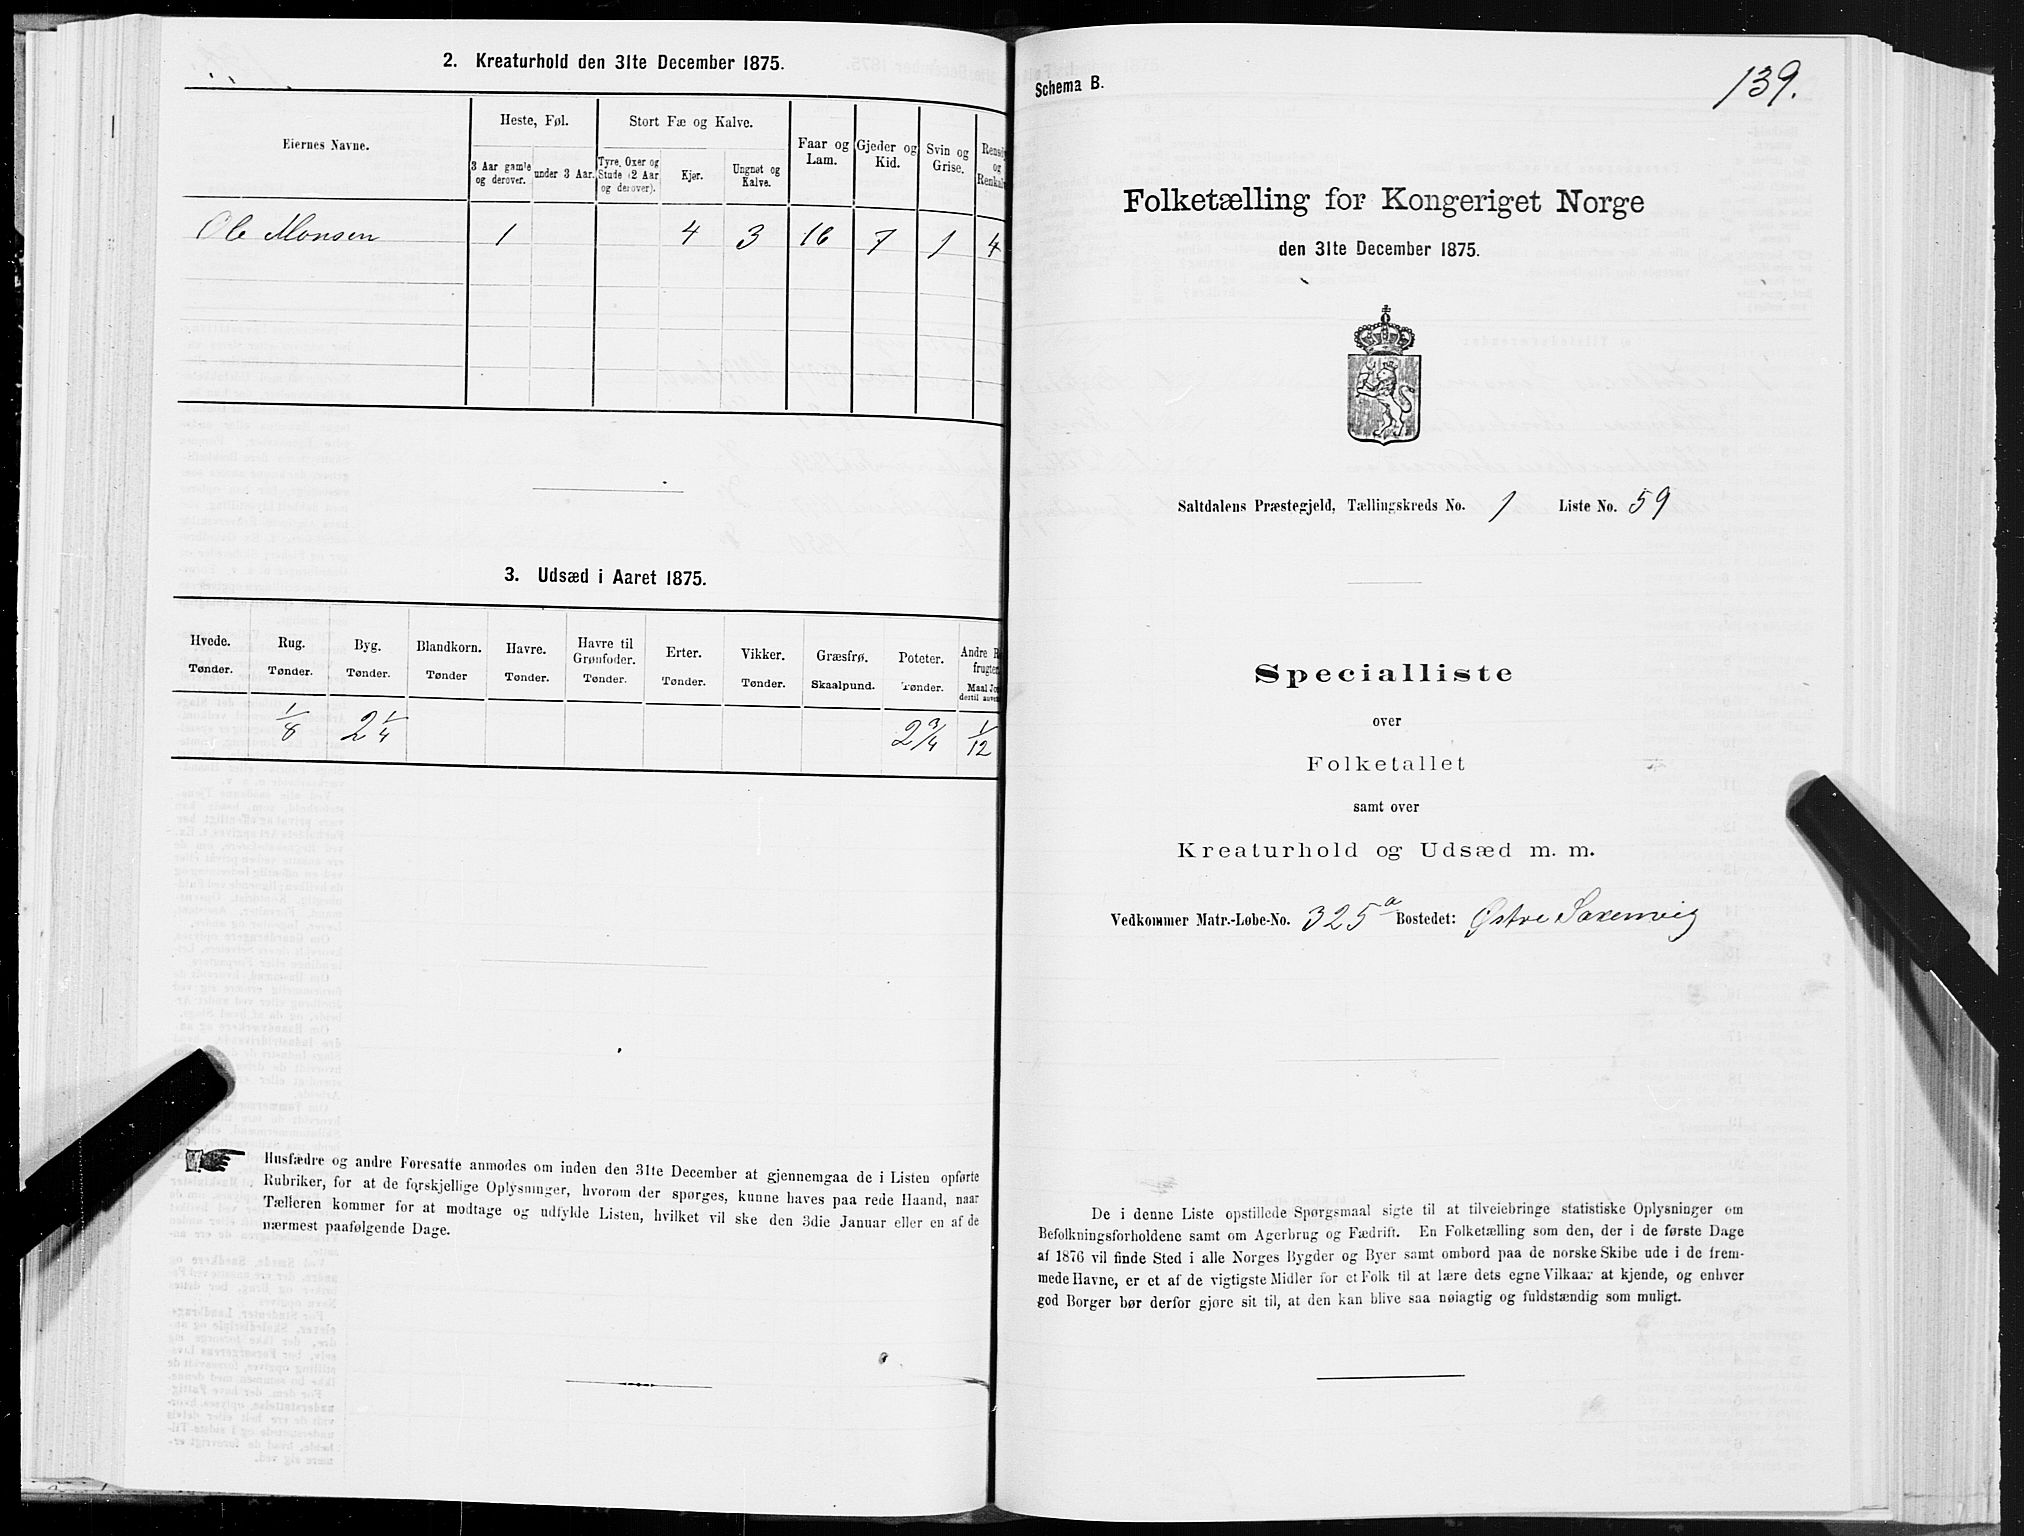 2. Kreaturhold den 31te December 1875.
Eiernes Navne.
Heste, Føl.
Stort Fæ og Kalve.
Faar og Lam.
Gjeder og Kid.
Svin og Grise.
og
3 Aar gamle og derover.
under 3 Aar.
Tyre, Oxer og Stude (2 Aar og derover).
Kjør.
Ungnøt og Kalve.
Ole Monsen 1 4 3 16 7 1 4
3. Udsæd i Aaret 1875.
Hvede. Rug. Byg. Blandkorn. Havre. Havre til Grønfoder. Erter. Vikker. Græsfrø. Poteter. Andre
Tønder. Tønder. Tønder. Tønder Tønder. Tønder. Tønder. Tønder. Skaalpund. Tønder. Maal
1/8 2 1/4 2 3/4 1/12
Husfædre og andre Foresatte anmodes om inden den 31te December at gjennemgaa de i Listen opførte
Rubriker, for at de forskjellige Oplysninger, hvorom der spørges, kunne haves paa rede Haand, naar
Tælleren kommer for at modtage og udfylde Listen, hvilket vil ske den 3die Januar eller en af de
nærmest paafølgende Dage.
Schema B.
139.
Folketælling for Kongeriget Norge
den 31te December 1875.
Saltdalens Præstegjeld, Tællingskreds No. 1 Liste No. 59
Specialliste
over
Folketallet
samt over
Kreaturhold og Udsæd m. m.
Vedkommer Matr.-Løbe-No. 325a Bostedet: Østre Saxenvig
De i denne Liste opstillede Spørgsmaal sigte til at tilveiebringe statistiske Oplysninger om
Befolkningsforholdene samt om Agerbrug og Fædrift. En Folketælling som den, der i de første Dage
af 1876 vil finde Sted i alle Norges Bygder og Byer samt ombord paa de norske Skibe ude i de frem-
mede Havne, er et af de vigtigste Midler for et Folk til at lære dets egne Vilkaar at kjende, og enhver
god Borger bør derfor gjøre sit til, at den kan blive saa nøiagtig og fuldstændig som muligt.